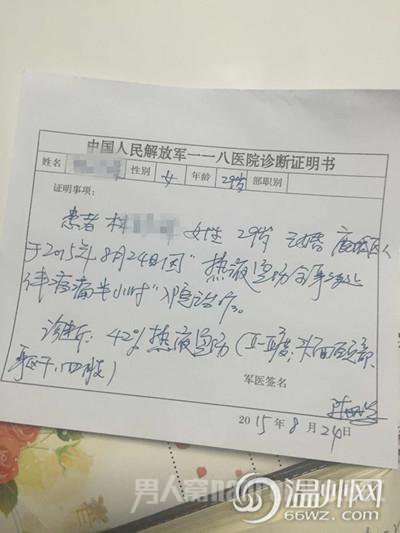 中国人民解放军一一八医院诊断证明书
姓名 性别 女 年龄 29岁 部职别
证明事项：
患者 林 女性 29岁 已婚 鹿城区人
于2015年8月24日因"热液烫伤全身多处
伴疼痛半小时"入院治疗。
诊断：42%热液烫伤（II-III度，头面颈部、
躯干、四肢）
军医签名
2015年8月24日
男人窝
温州网
66WZ.COM